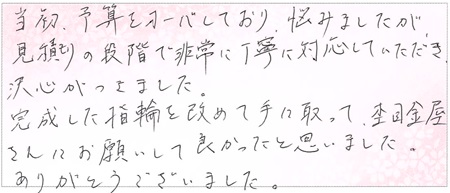 当初、予算をオーバしており、悩みましたが、
見積もりの段階で非常に丁寧に対応していただき、
決心がつきました。
完成した指輪を改めて手に取って、杢目金屋
さんにお願いして良かったと思いました。
ありがとうございました。